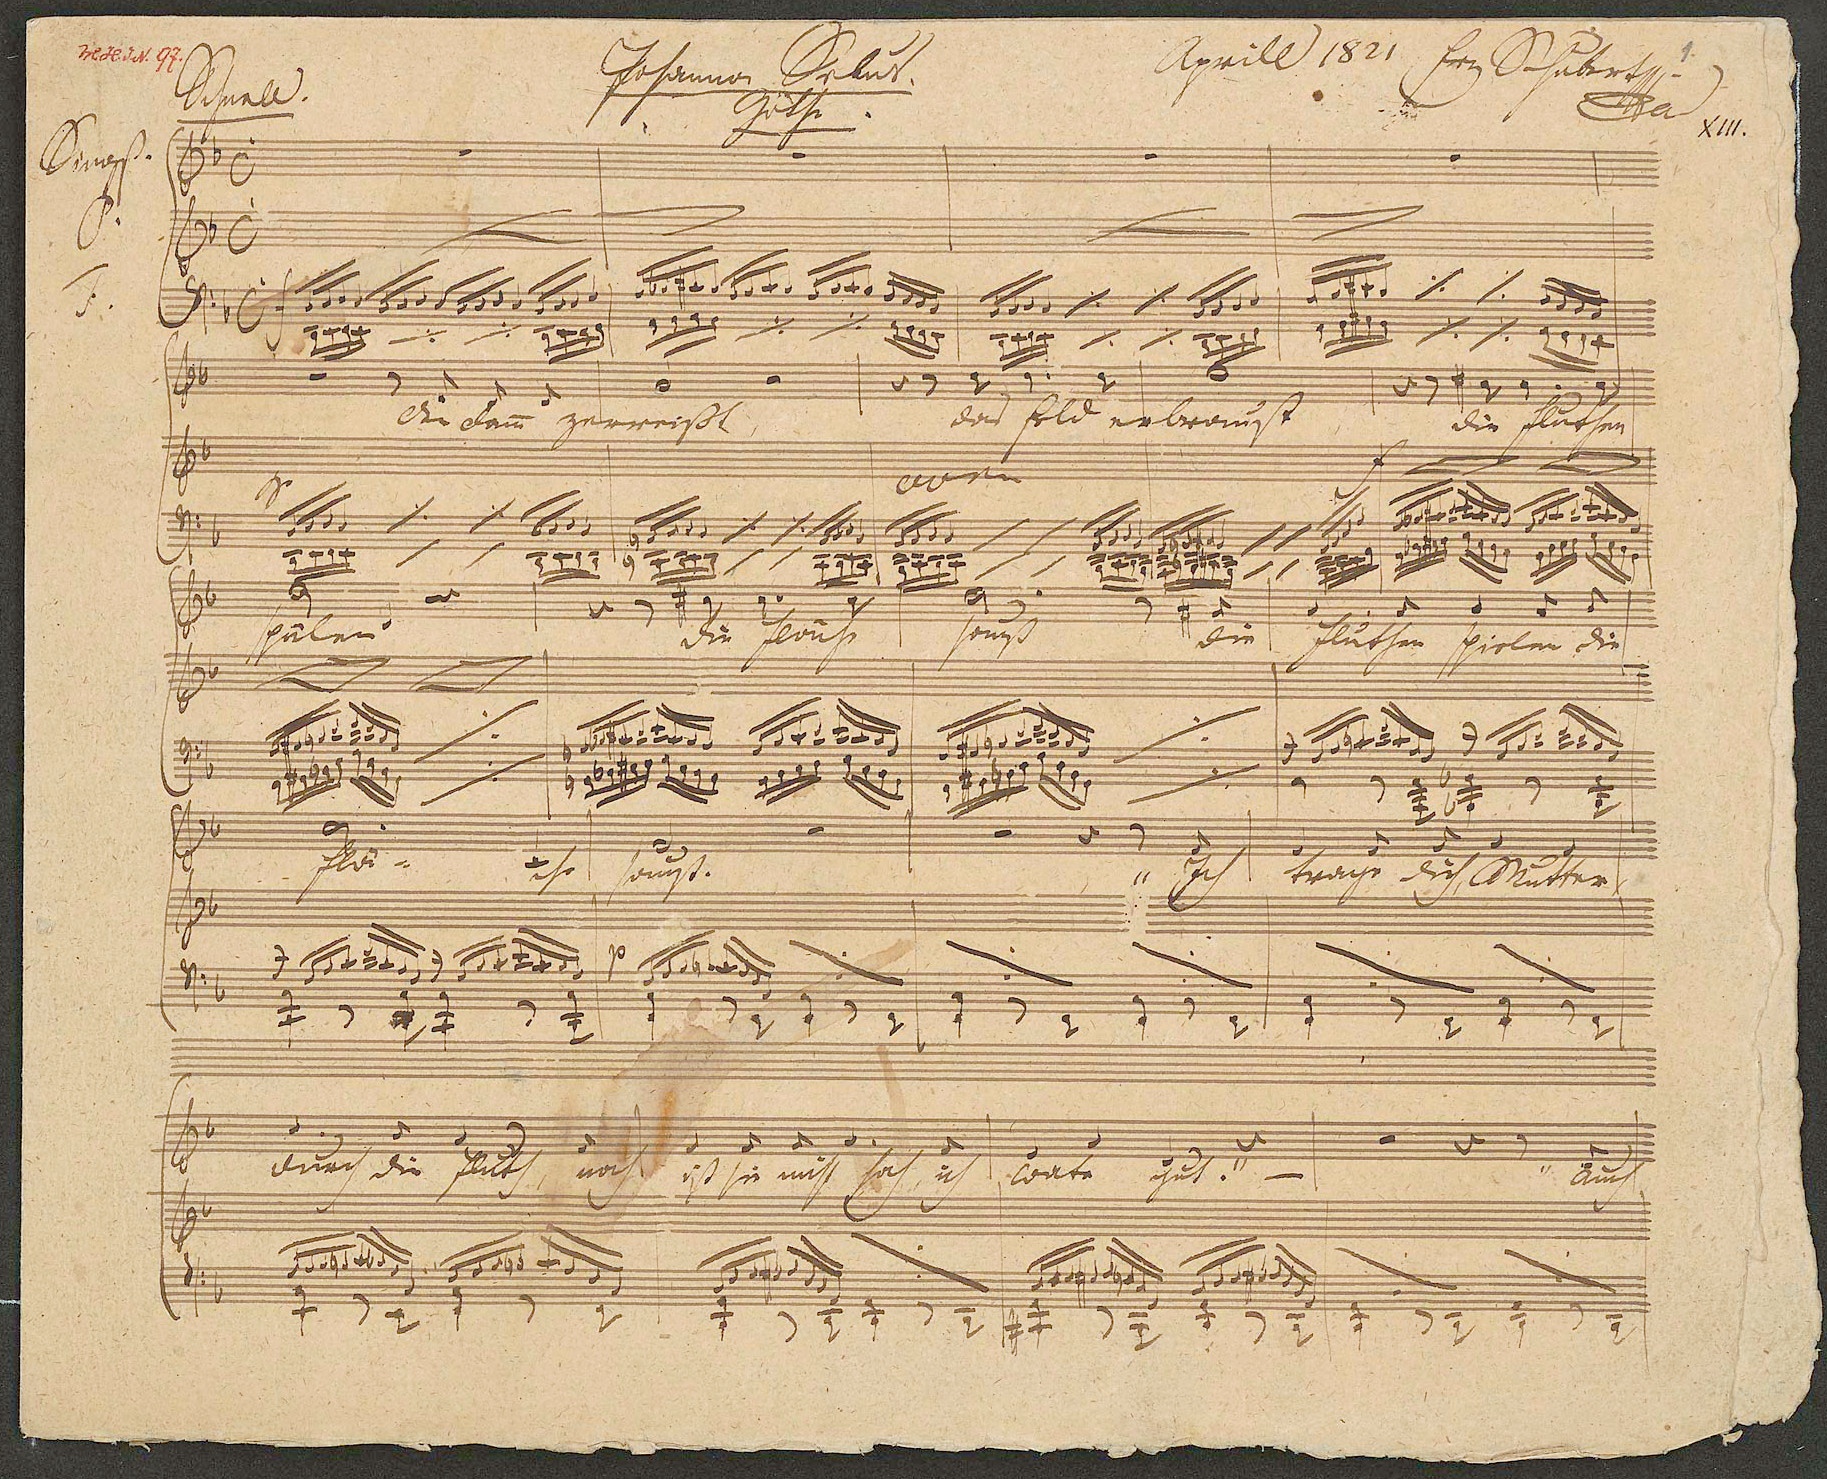 Johanna Sebus.
Aprill 1821 Frz Schubert mpia
1.
Schnell.
Göthe.
XIII.
Singst.
P.
F.
der Damm zerreißt, das Feld erbraust, die Fluthen
cresc
spülen die Fläche saust die Fluthen spielen die
Flä - che saust. " Ich trage dich, Mutter,
p
durch die Fluth, noch ist sie nicht hoch, ich wate gut." — " Auch